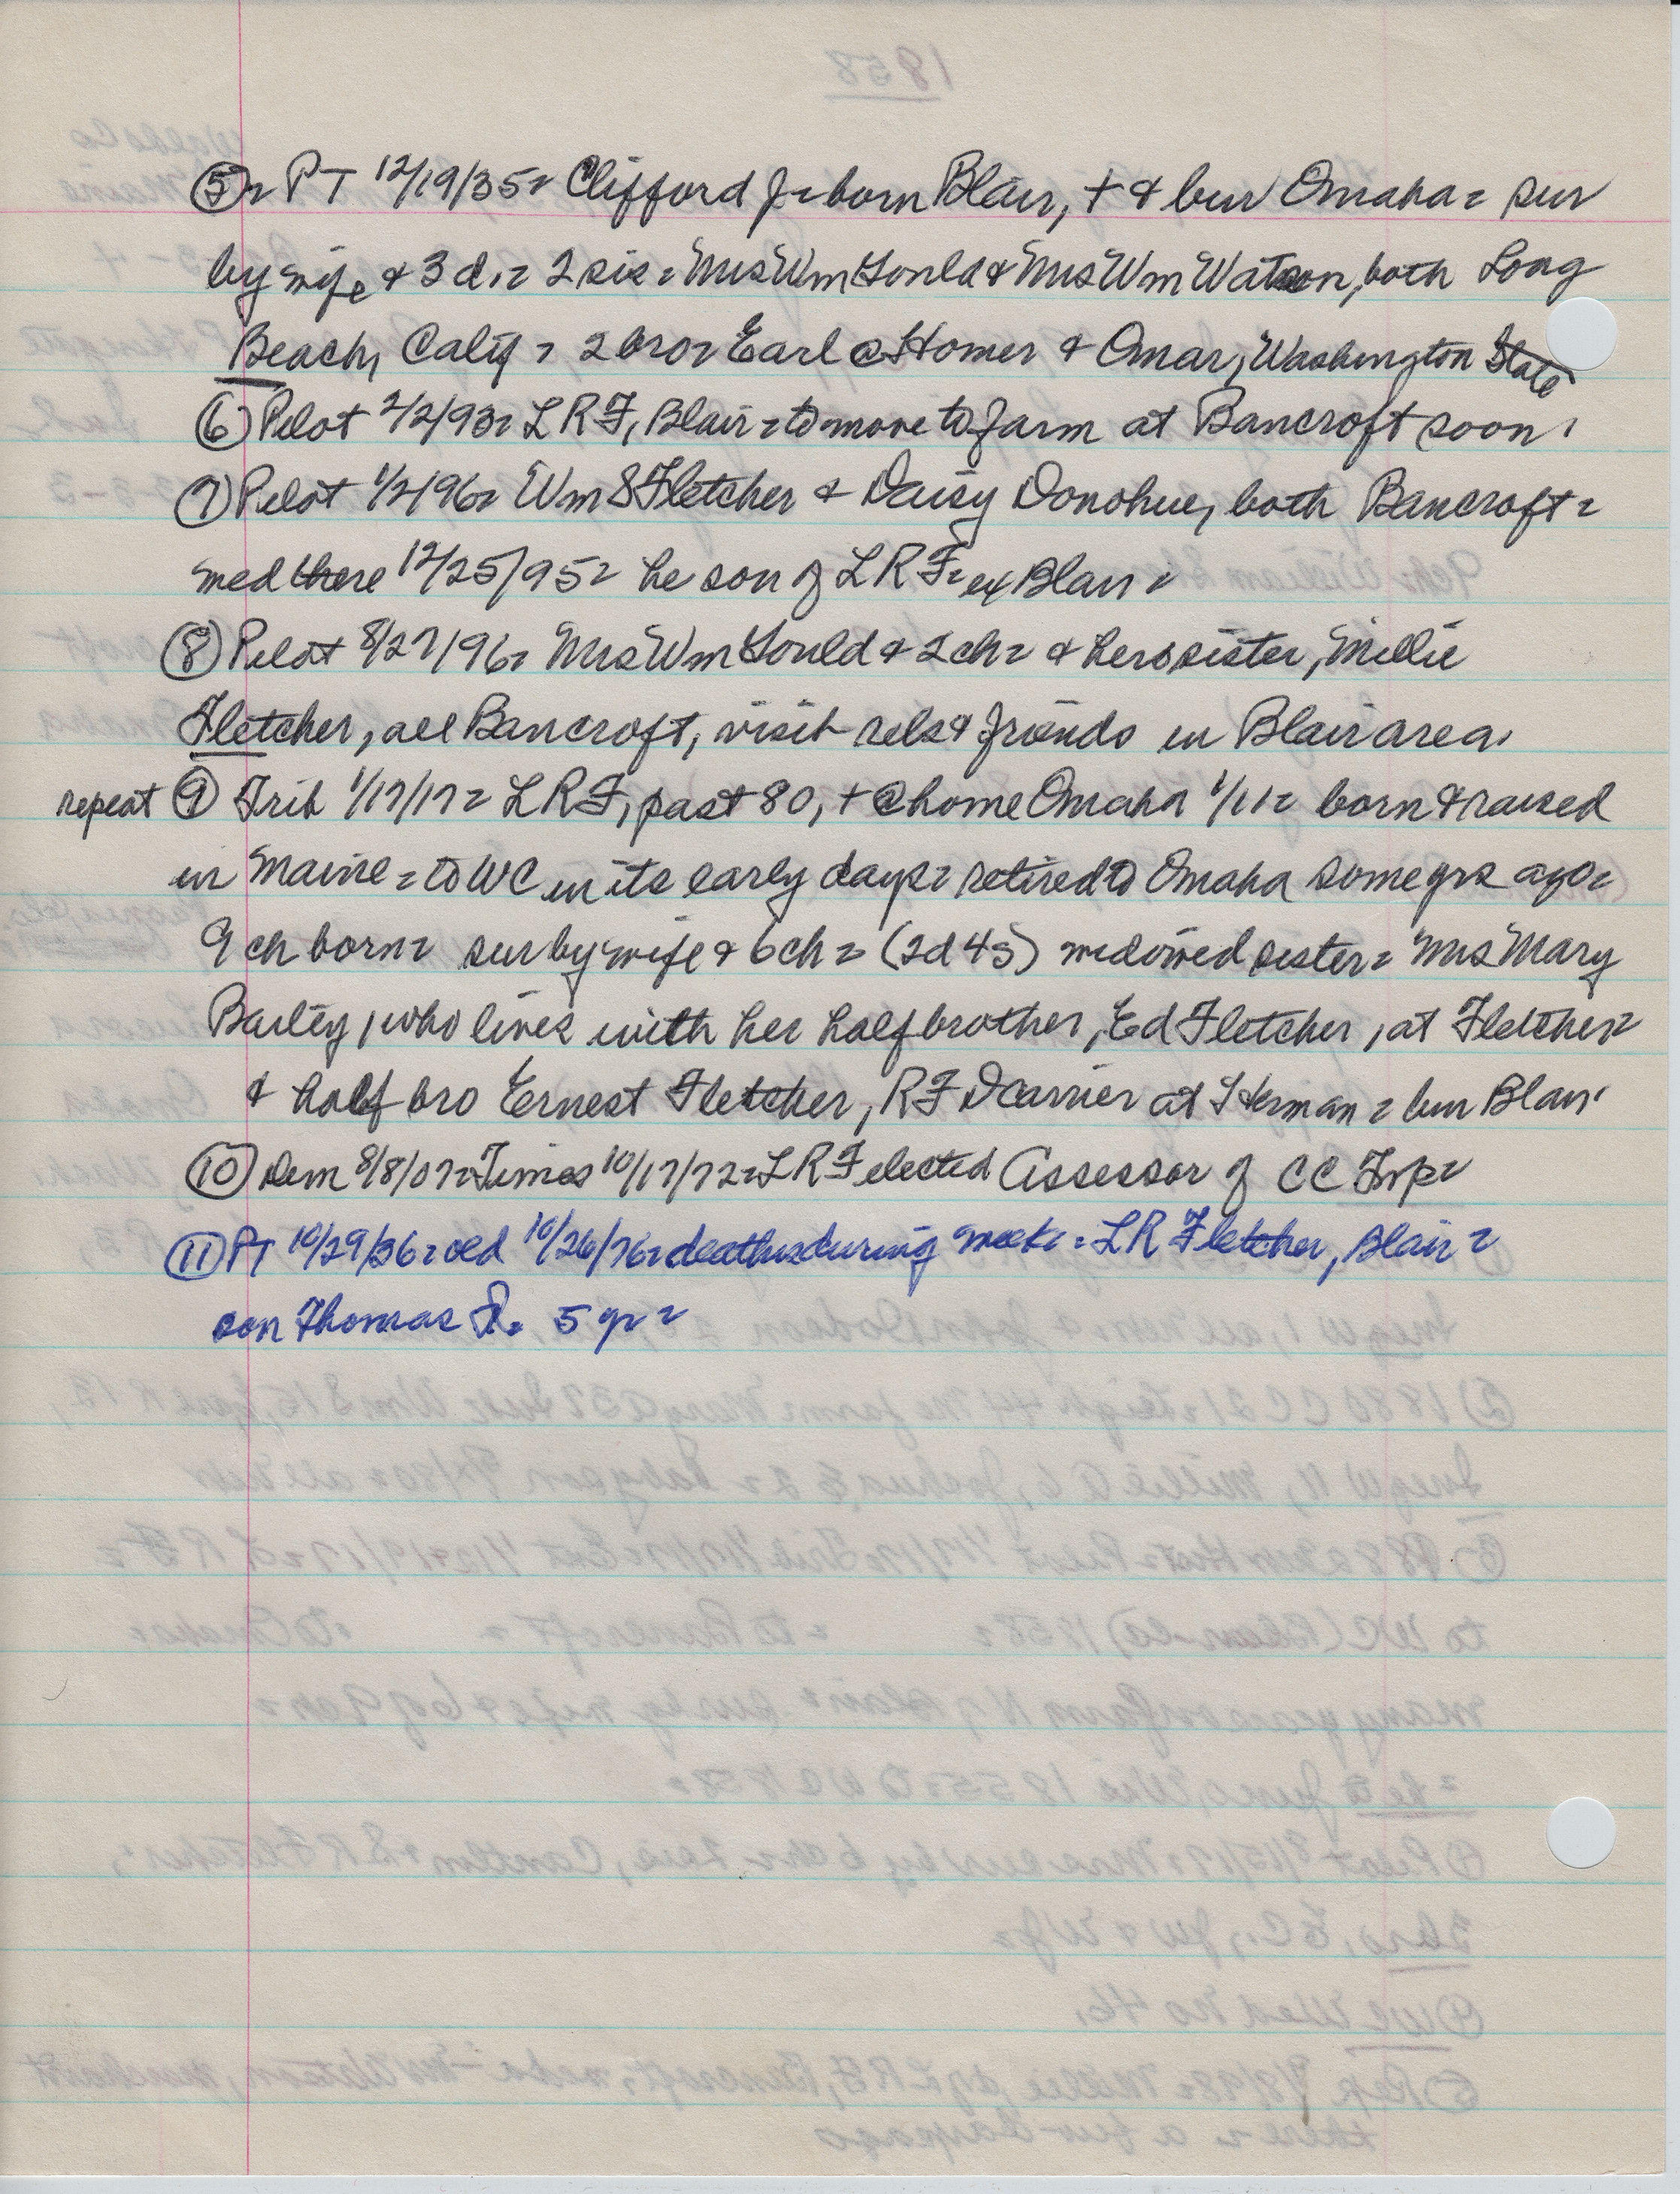 ⑤= PT 12/19/35= Clifford J= born Blair, + & bur Omaha= sur
by wife & 3 d.= 2 sis= Mrs Wm Gould & Mrs Wm Watson, both Long
Beach, Calif= 2 bro= Earl @ Homer & Omar, Washington State
⑥ Pilot 2/2/93= L R F, Blair= to move to farm at Bancroft soon.
⑦ Pilot 1/2/96= Wm S Fletcher & Daisy Donohue, both Bancroft=
med there 12/25/95= he son of L R F= ex Blair=
⑧ Pilot 8/27/96= Mrs Wm Gould & 2 ch= & her sister, Millie
Fletcher, all Bancroft, visit rels & friends in Blair area.
repeat ⑨ Trib 1/17/17= L R F, past 80, + @ home Omaha 1/11= born & raised
in Maine= to WC in its early days= retired to Omaha some yrs ago=
9 ch born= sur by wife & 6 ch= (2d 4s) widowed sister= Mrs Mary
Bailey, who lives with her half brother, Ed Fletcher, at Fletcher=
& half bro Ernest Fletcher, RFD carrier at Herman= bur Blair.
⑩ Dem 8/8/07= Times 10/17/72= L R F elected Assessor of CC Twp=
⑪ PT 10/29/36= old 10/26/76= deaths during week= L R Fletcher, Blair=
son Thomas R. 5 yr=